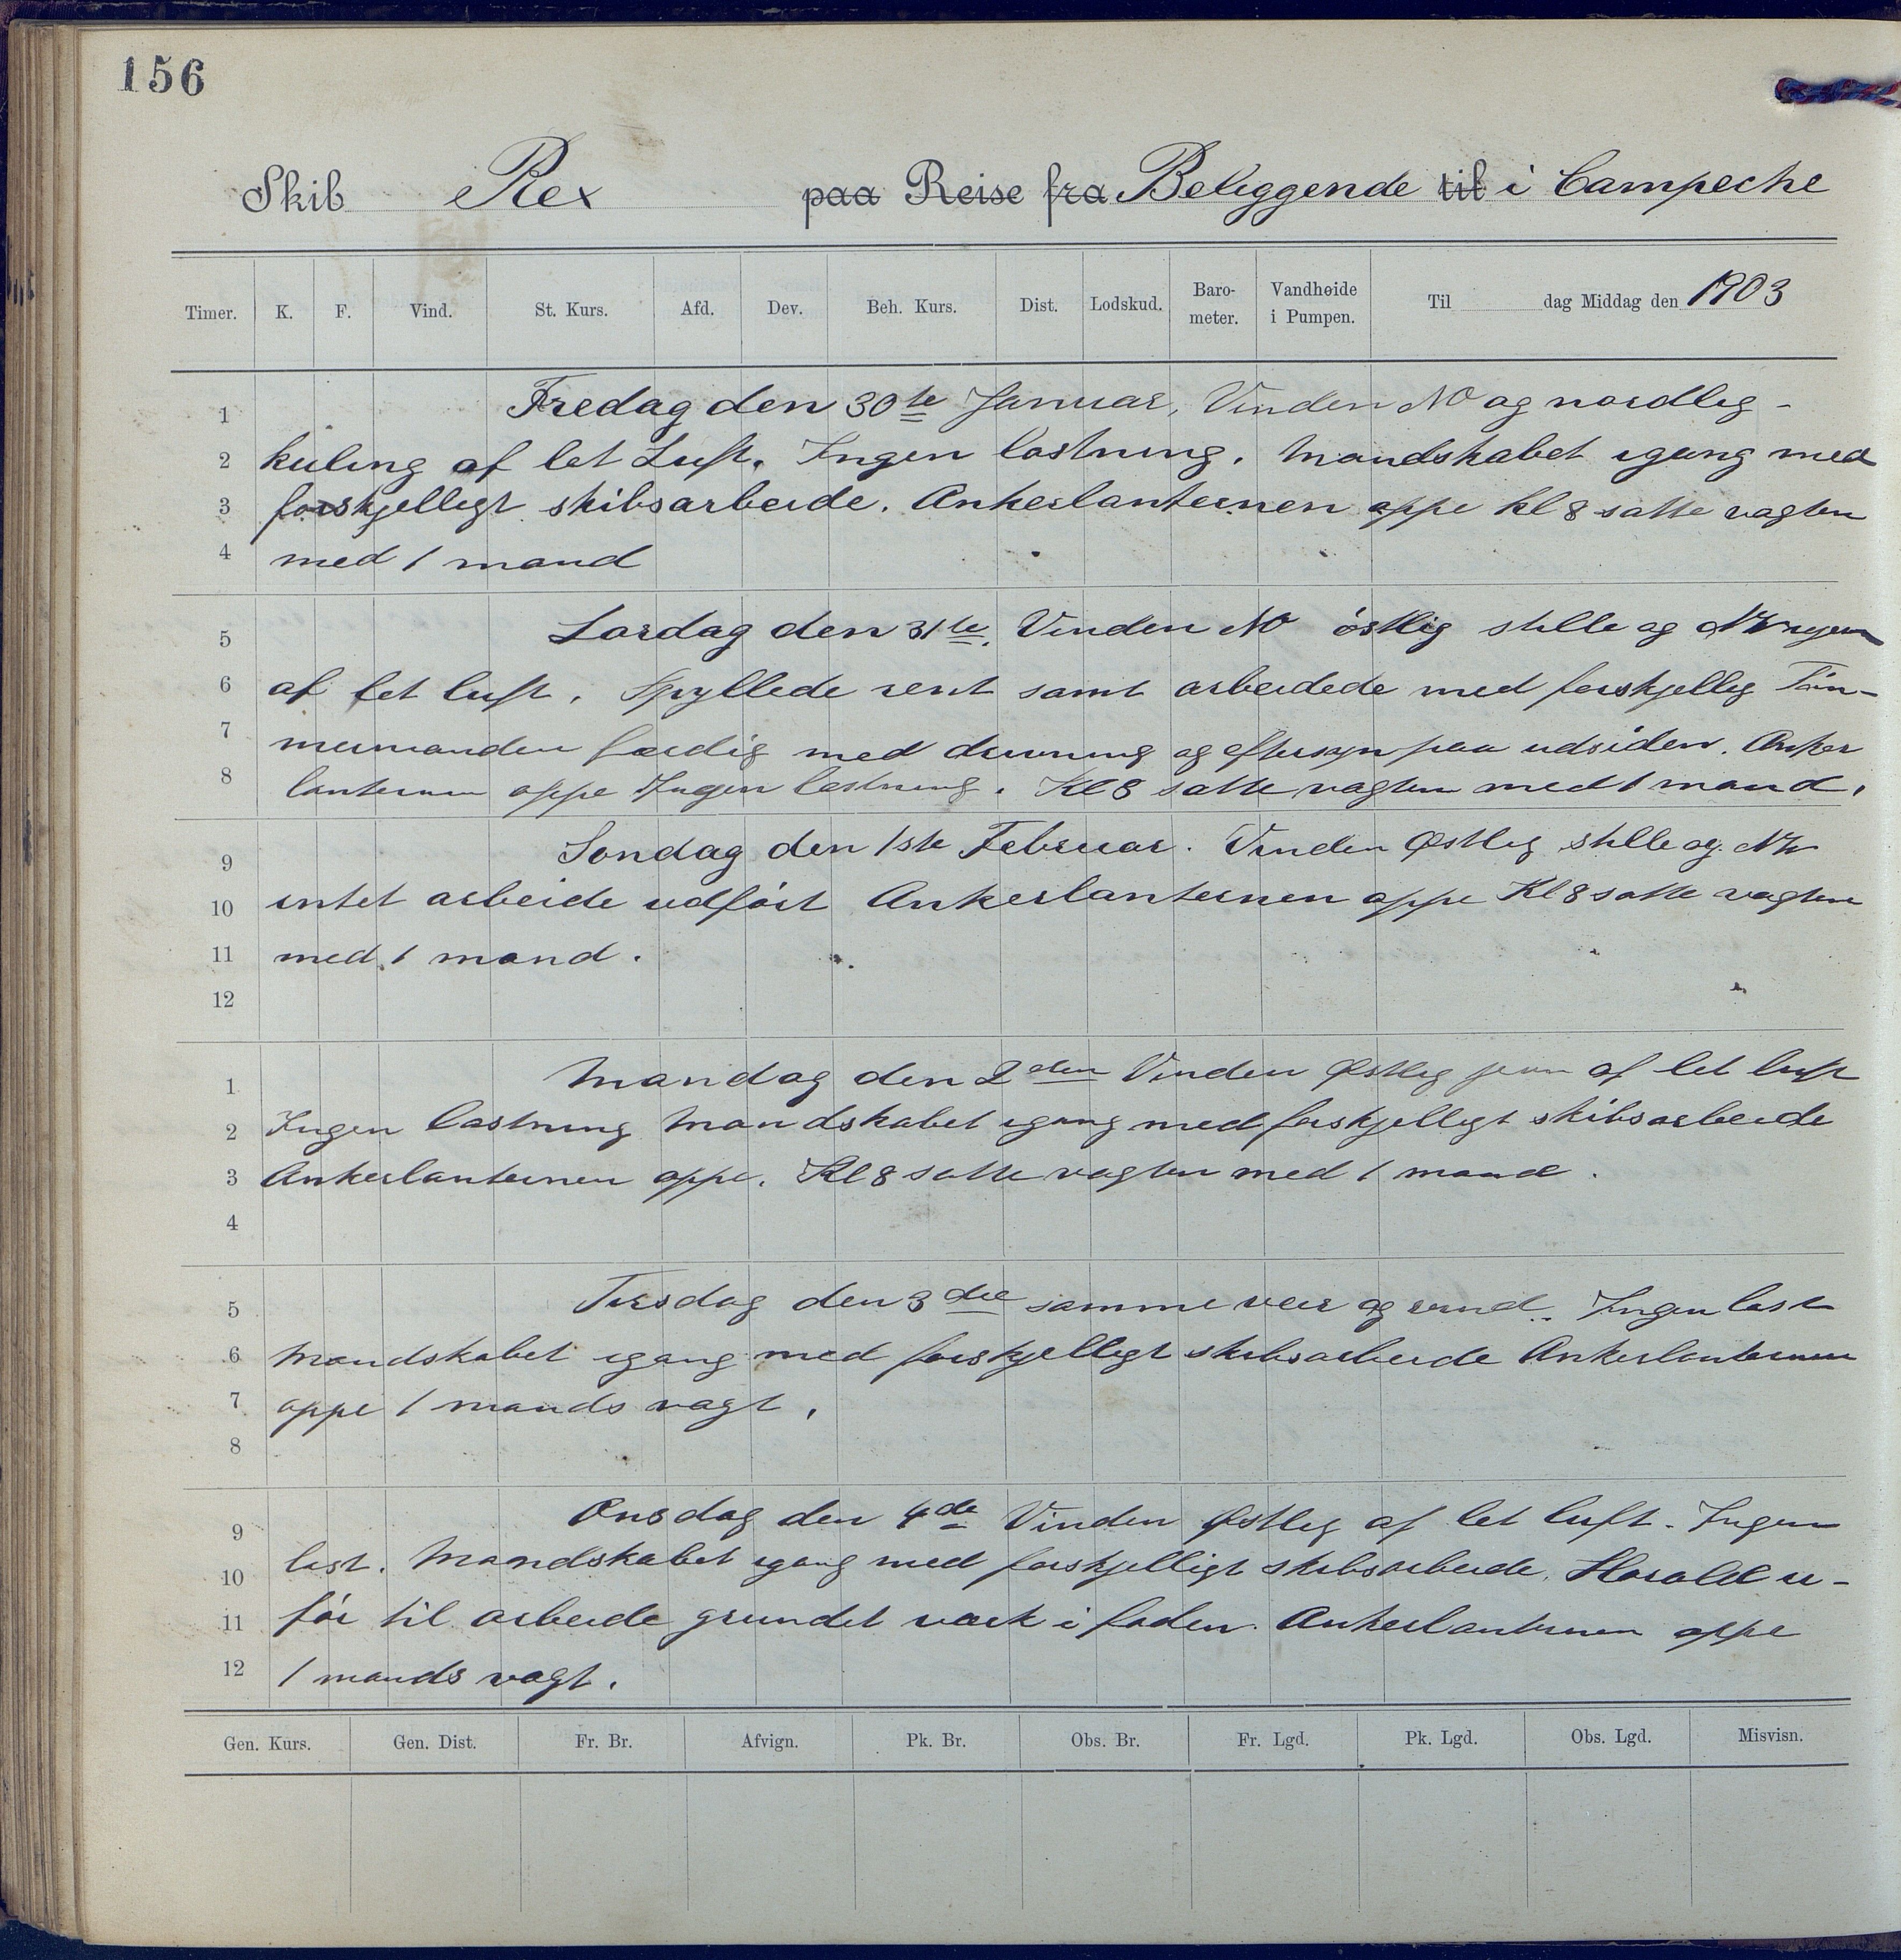 156
Skib Rex paa Reise fra Beliggende til i Campeche
Timer. K. F. Vind. St. Kurs. Afd. Dev. Beh. Kurs. Dist. Lodskud. Baro-meter. Vandhøide i Pumpen. Til dag Middag den 1903
1 Fredag den 30te Januar, Vinden NO og nordlig -
2 kuling af let Luft. Ingen lastning. Mandskabet igang med
3 forskjelligt skibsarbeide. Ankerlanternen oppe Kl 8 satte vagten
4 med 1 mand
5 Lørdag den 31te. Vinden NO østlig stille og NW
6 af let luft. Spyllede rent samt arbeidede med forskjellig Töm-
7 mermanden færdig med og eftersyn paa udsiden. Anker
8 lanternen oppe Ingen lastning. Kl 8 satte vagten med 1 mand.
9 Søndag den 1ste Februar. Vinden Østlig stille og NW
10 intet arbeide udført Ankerlanternen oppe Kl 8 satte vagten
11 med 1 mand.
12
1 Mandag den 2den Vinden Østlig jevn af let luft
2 Ingen lastning Mandskabet igang med forskjelligt skibsarbeide
3 Ankerlanternen oppe. Kl 8 satte vagten med 1 mand.
4
5 Tirsdag den 3die samme veir og vind. Ingen last
6 Mandskabet igang med forskjelligt skibsarbeide Ankerlanternen
7 oppe 1 mands vagt.
8
9 Onsdag den 4de Vinden Østlig af let luft. Ingen
10 last. Mandskabet igang med forskjelligt skibsarbeide. Harald u-
11 før til arbeide grundet værk i foden. Ankerlanternen oppe
12 1 mands vagt.
Gen. Kurs. Gen. Dist. Fr. Br. Afvign. Pk. Br. Obs. Br. Fr. Lgd. Pk. Lgd. Obs. Lgd. Misvisn.